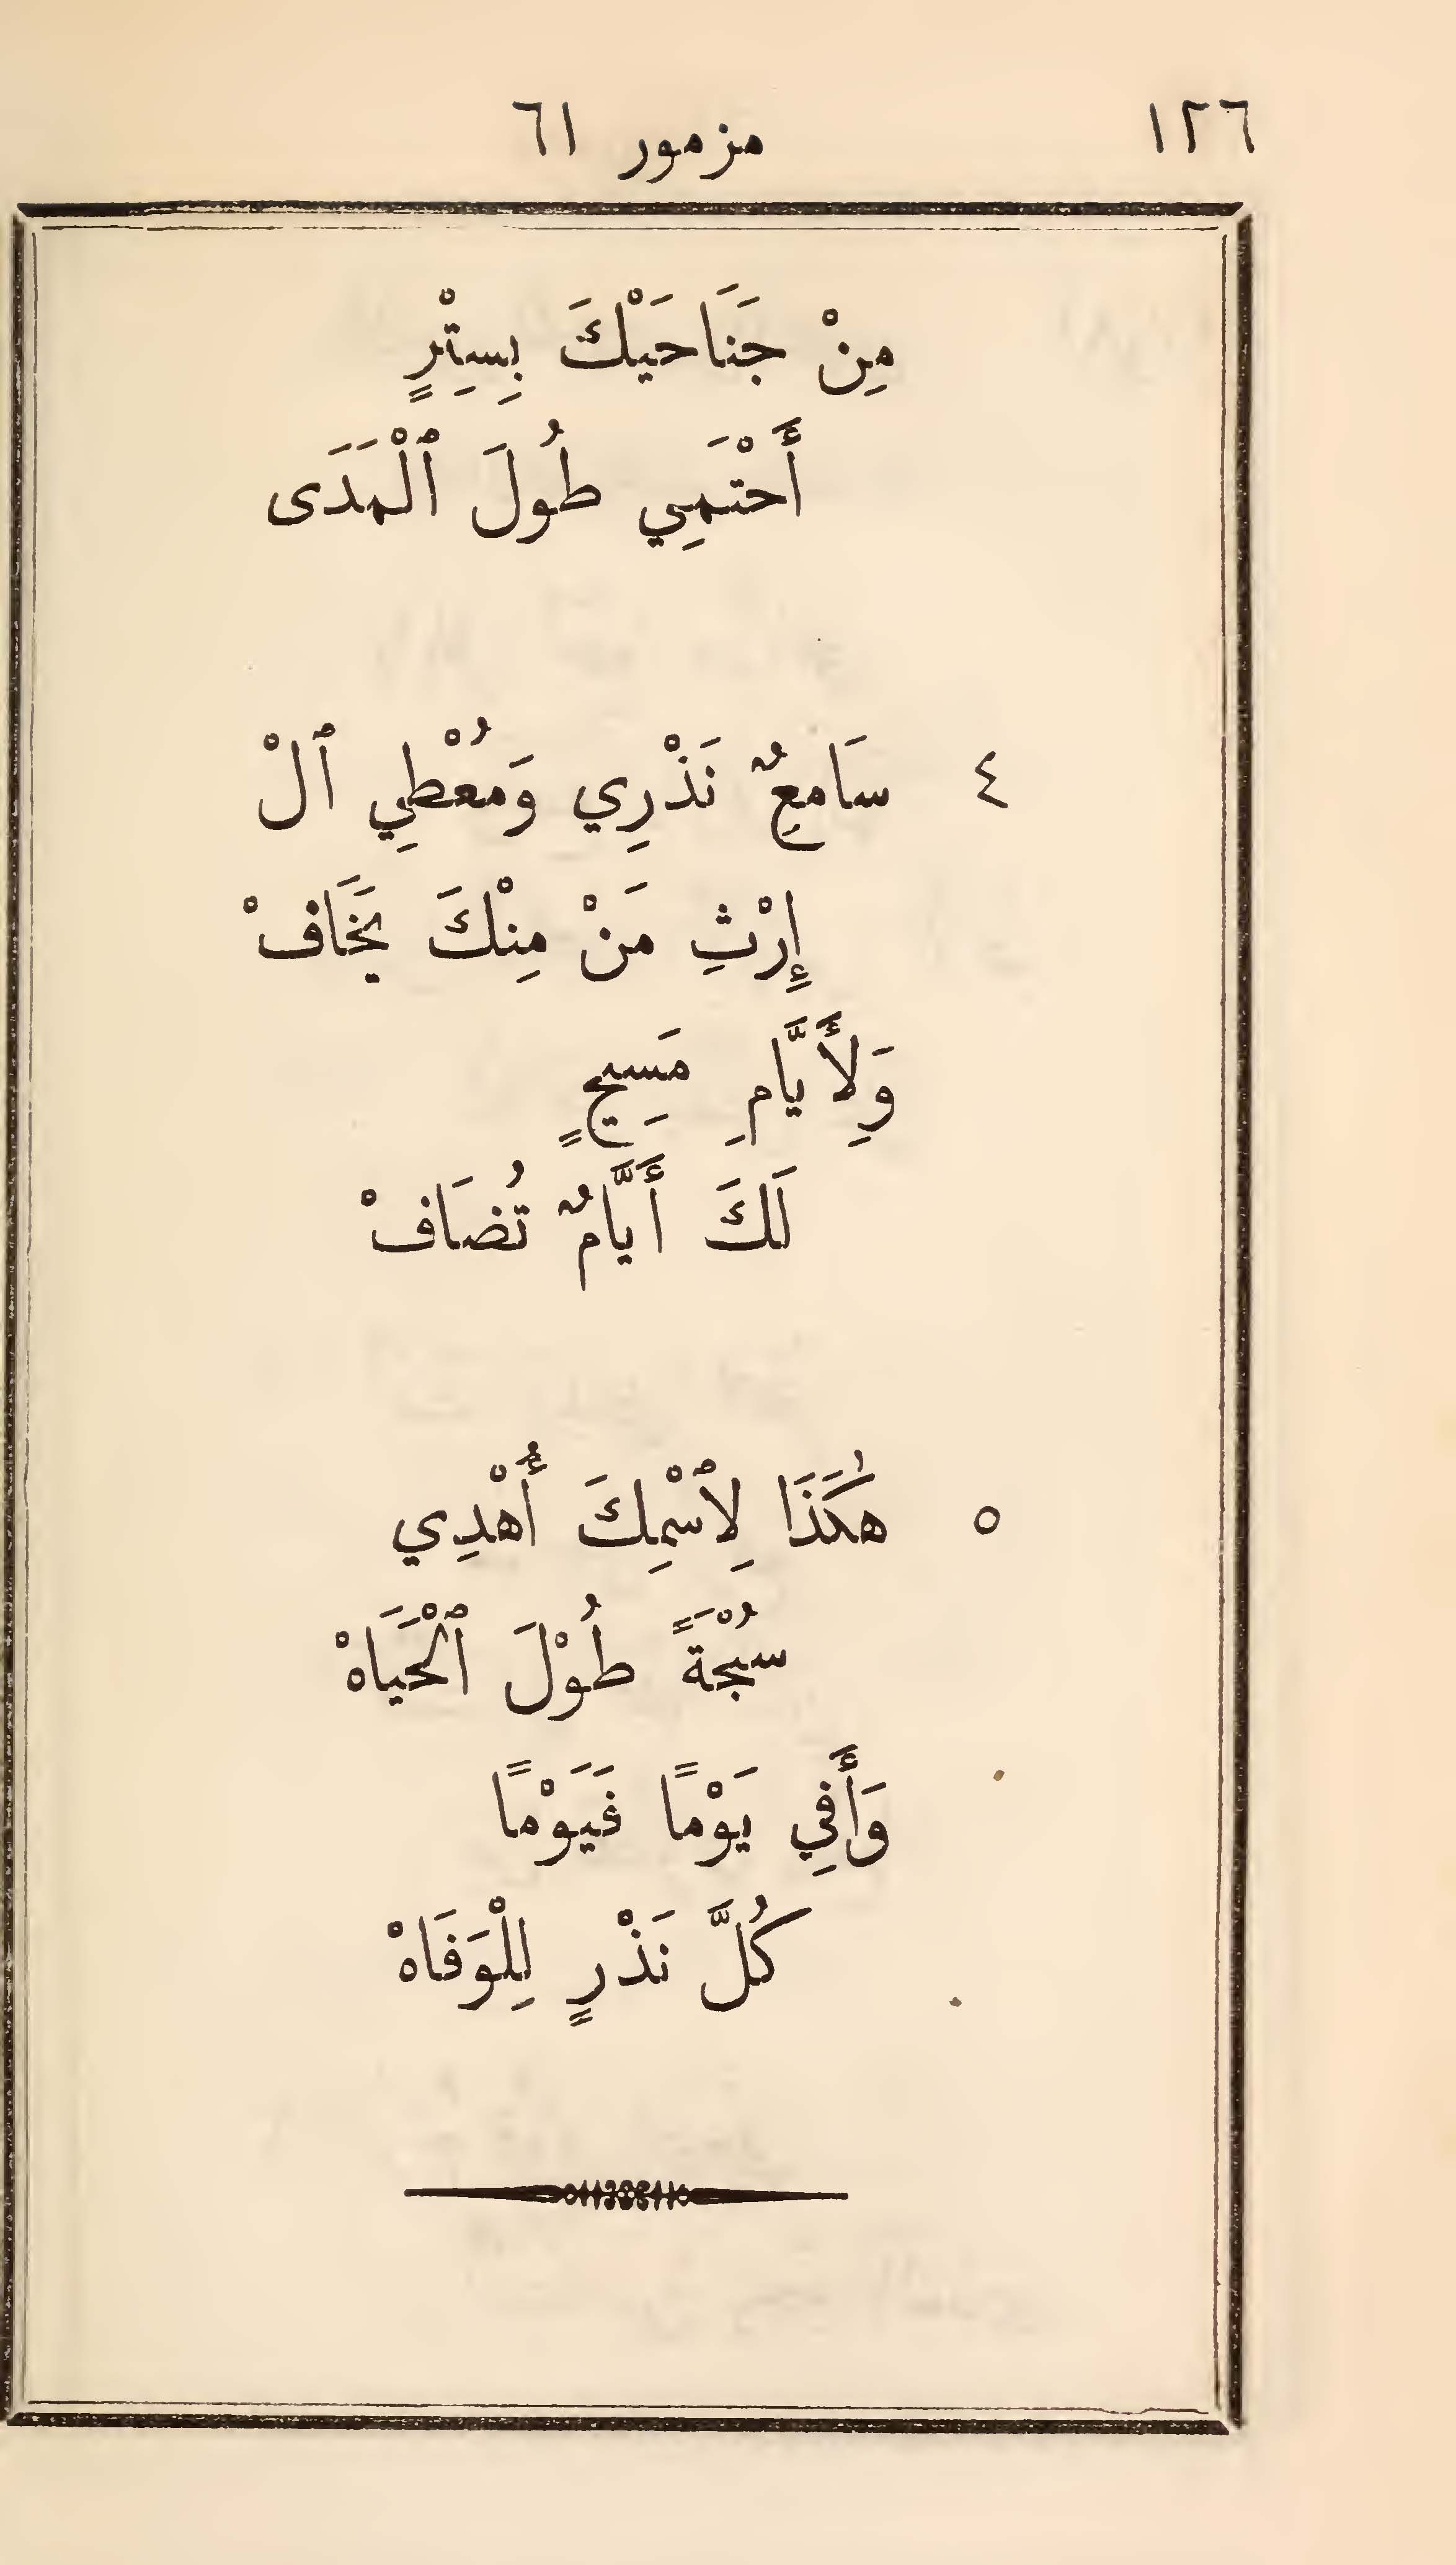 ١٢٦ مزمور ٦١
مِنْ جَنَاحَيْكَ بِسِتْرٍ
أَحْتَمِي طُولَ ٱلْمَدَى
٤ سَامِعٌ نَذْرِي وَمُعْطِي ٱلْ
إِرْثِ مَنْ مِنْكَ يَخَافْ
وَلِأَيَّامِ مَسِيحٍ
لَكَ أَيَّامٌ تُضَافْ
٥ هٰكَذَا لِٱسْمِكَ أُهْدِي
سُبْحَةً طُوْلَ ٱلْحَيَاهْ
وَأَفِي يَوْمًا فَيَوْمًا
كُلَّ نَذْرٍ لِلْوَفَاهْ